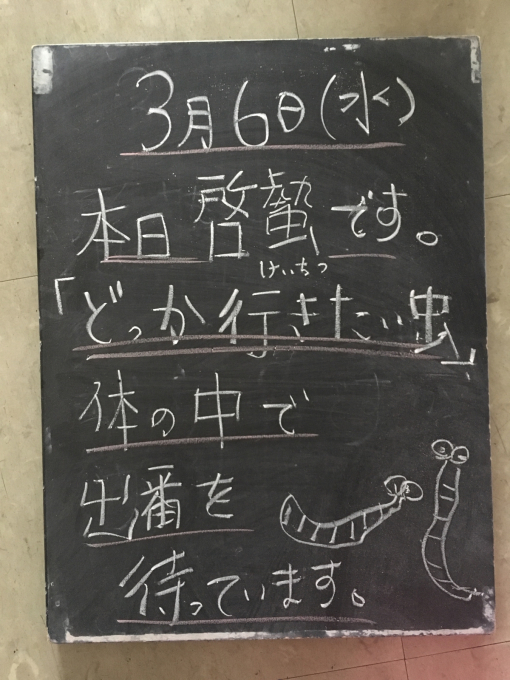 3月6日(水)
本日啓蟄です。
けいちつ
「どっか行きたい虫」
体の中で
出番を
待っています。